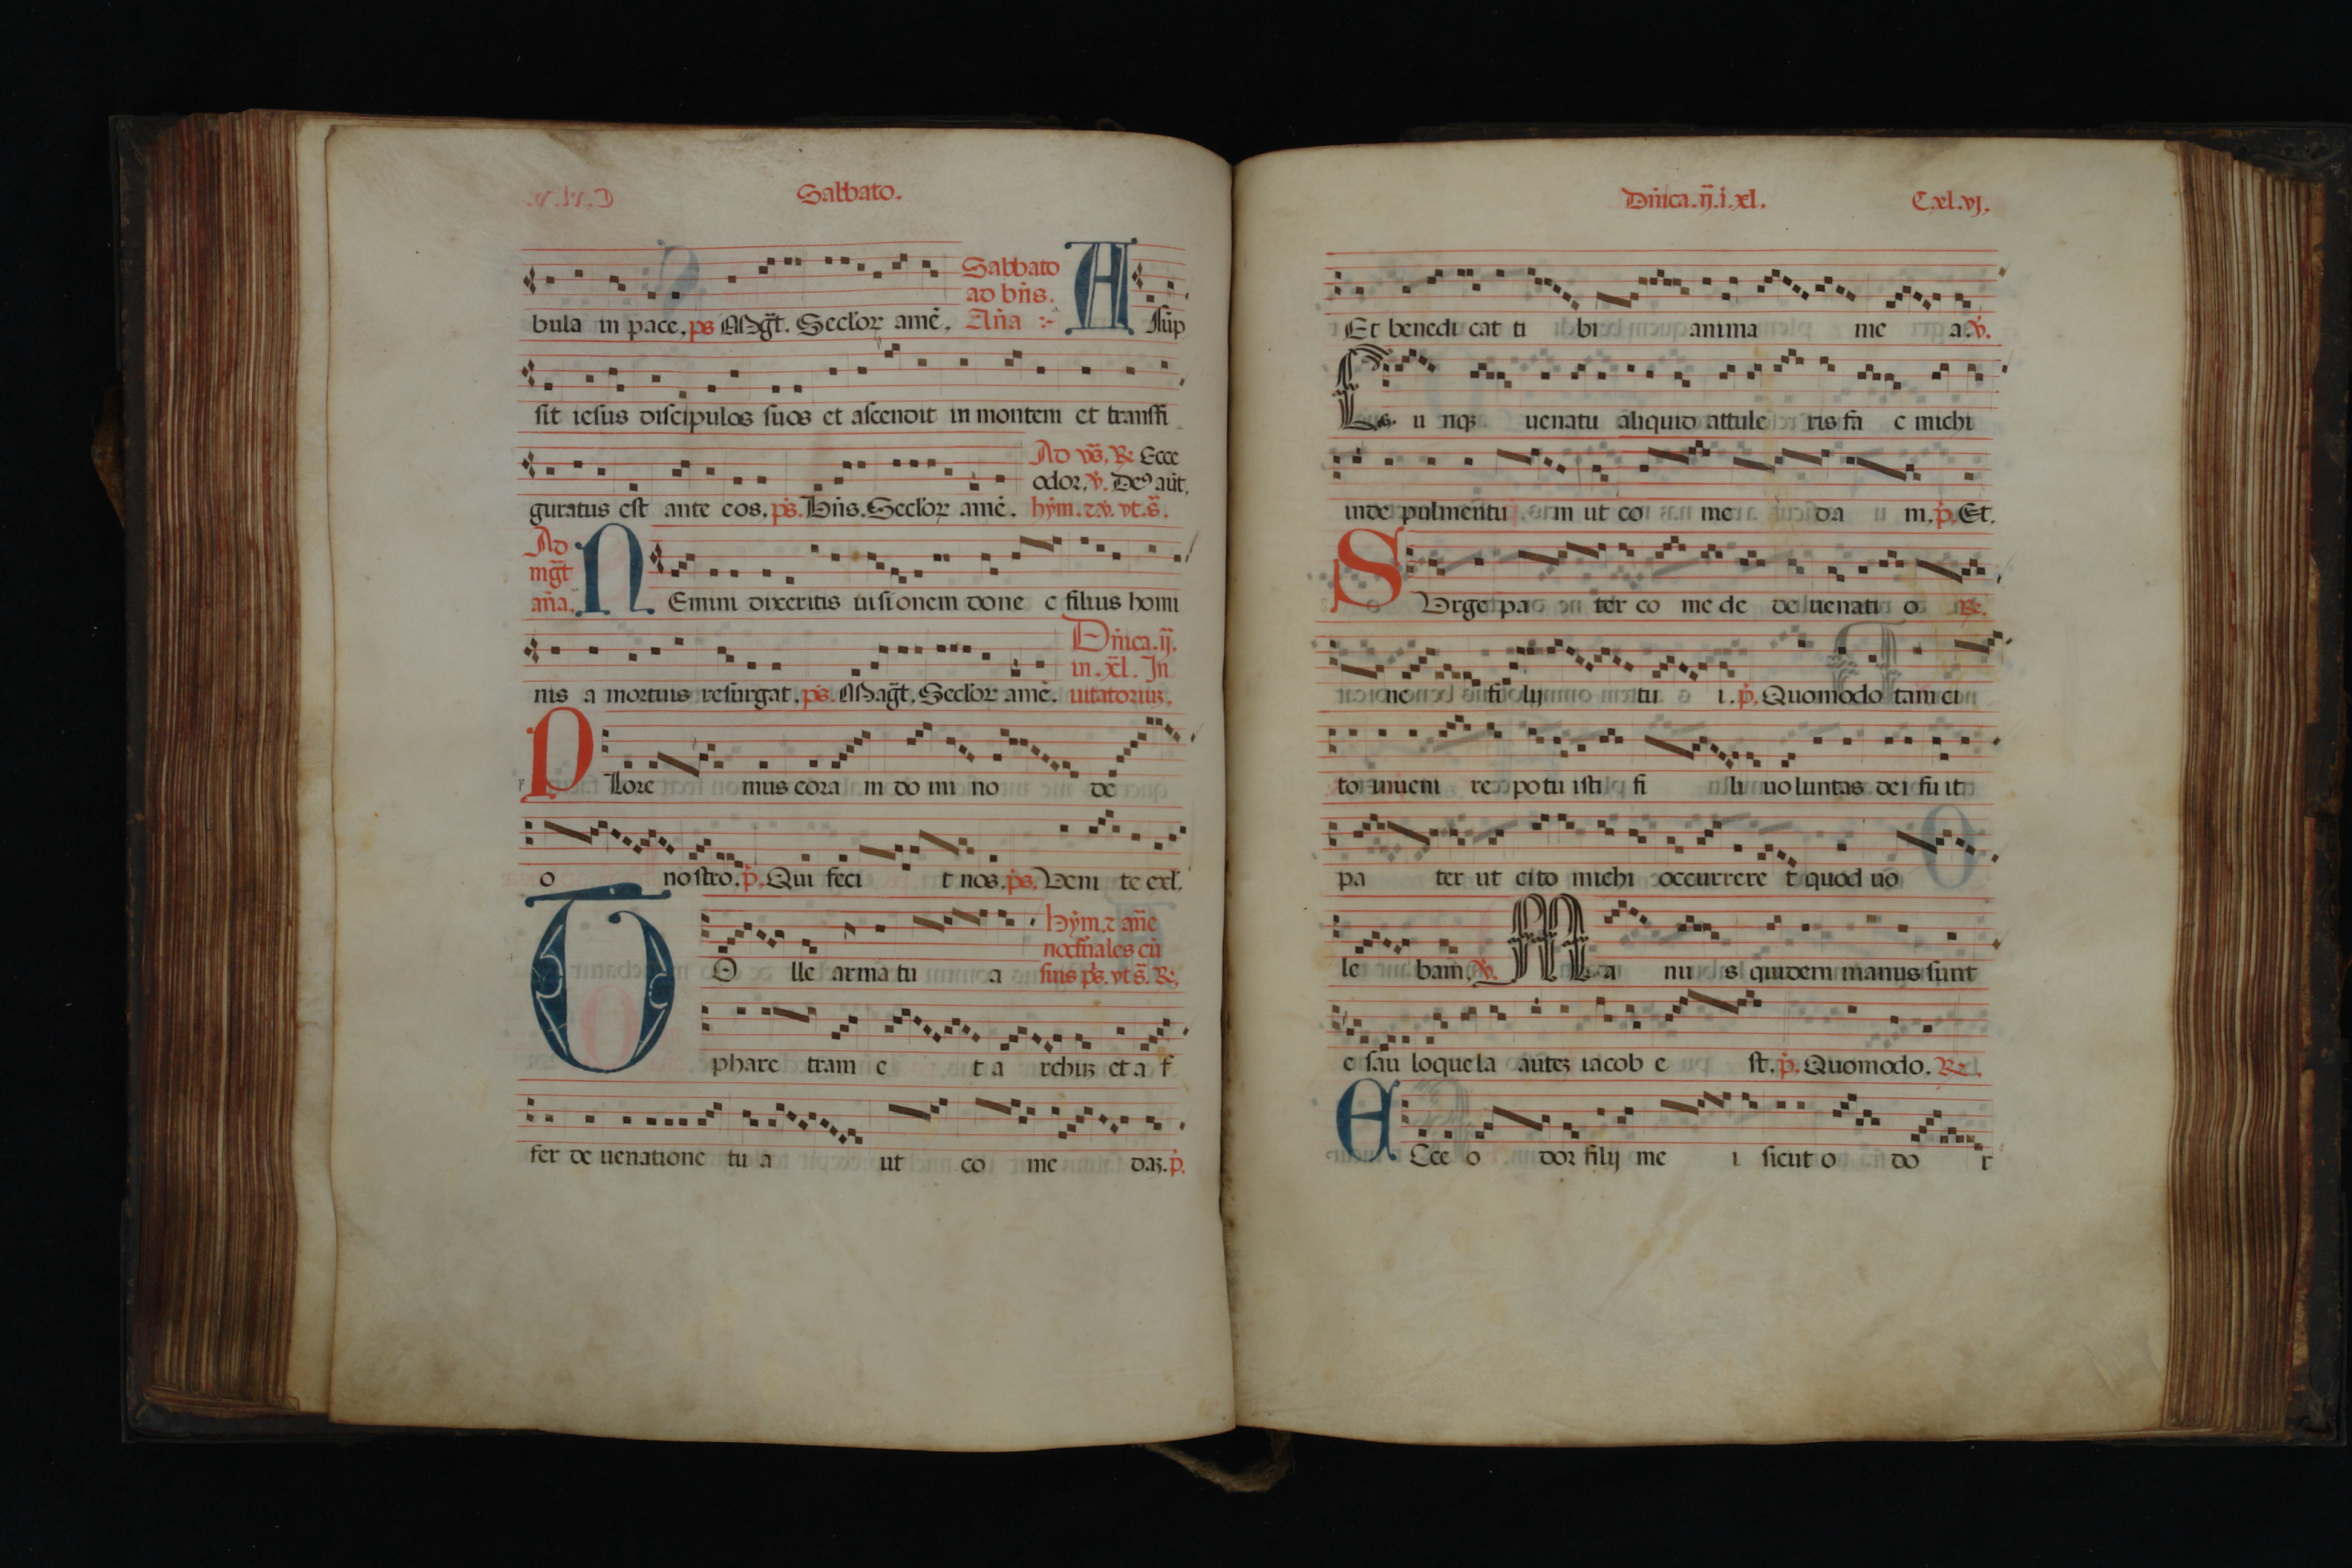 Sabbato.
bula in pace. ps Mag̃t. Seclor̃ amẽ. Sabbato ad bñs. Aña A ſſũp
ſit ieſus diſcipulos ſuos et aſcendit in montem et tranſfi
guratus eſt ante eos. ps. Bñs. Seclor̃ amẽ. Ad vs̃. R. Ecce odor. v. De9 aũt. hym. ⁊ v. vt. s̃.
Ad mg̃t aña. N Emini dixeritis uisionem done c filius homi
nis a mortuis reſurgat. ps. Mag̃t. Seclor̃ amẽ. Dñica. ij. in. xl̃. In uitatoriuȝ.
P lore mus cora m do mi no de
o noſtro. p. Qui feci t nos. ps. Veni te exl.
T O lle arma tu a hym. ⁊ añe nocturnales cũ suis ps. vt s̃. R.
phare tram e t a rchuȝ et a f
fer de uenatione tu a ut co me daȝ. p.
Dñica. ij. i. xl. C. xl. vj.
Et benedi cat ti bi anima me a. v.
C u nqȝ uenatu aliquid attule ris fa c michi
inde pulmentu m ut co me da m. p. Et.
S Vrge pa ter co me de de uenati o R.
ne fi lij tu i. p. Quomodo tam ci
to inueni re potu isti fi li uo luntas dei fu it
pa ter ut cito michi occurrere t quod uo
le bam. v. M a nu s quidem manus ſunt
e sau loque la auteȝ iacob e ſt. p. Quomodo. R.
E Cce o dor filij me i sicut o do r